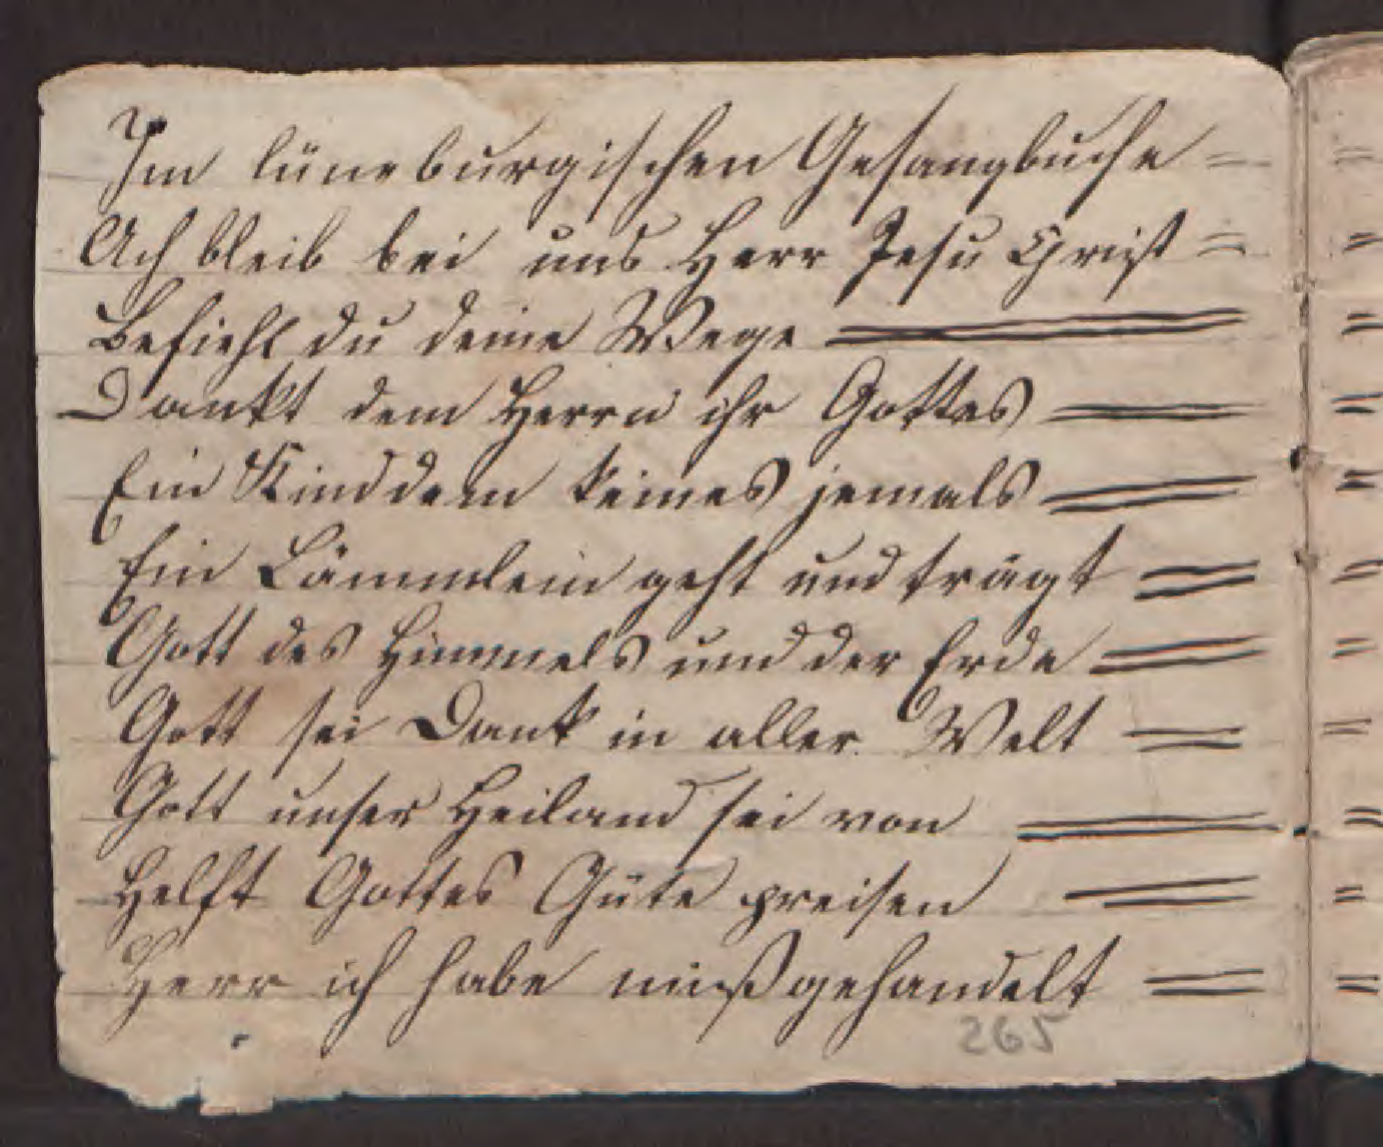 Im lüneburgischen Gesangbuche =
Ach bleib bei uns Herr Jesu Christ =
Befiehl du deine Wege =
Dankt dem Herrn ihr Gottes =
Ein Kind dem keines jemals =
Ein Lämmlein geht und trägt =
Gott des Himmels und der Erde =
Gott sei Dank in aller Welt =
Gott unser Heiland sei von =
Helft Gottes Güte preisen =
Herr ich habe mißgehandelt =
265